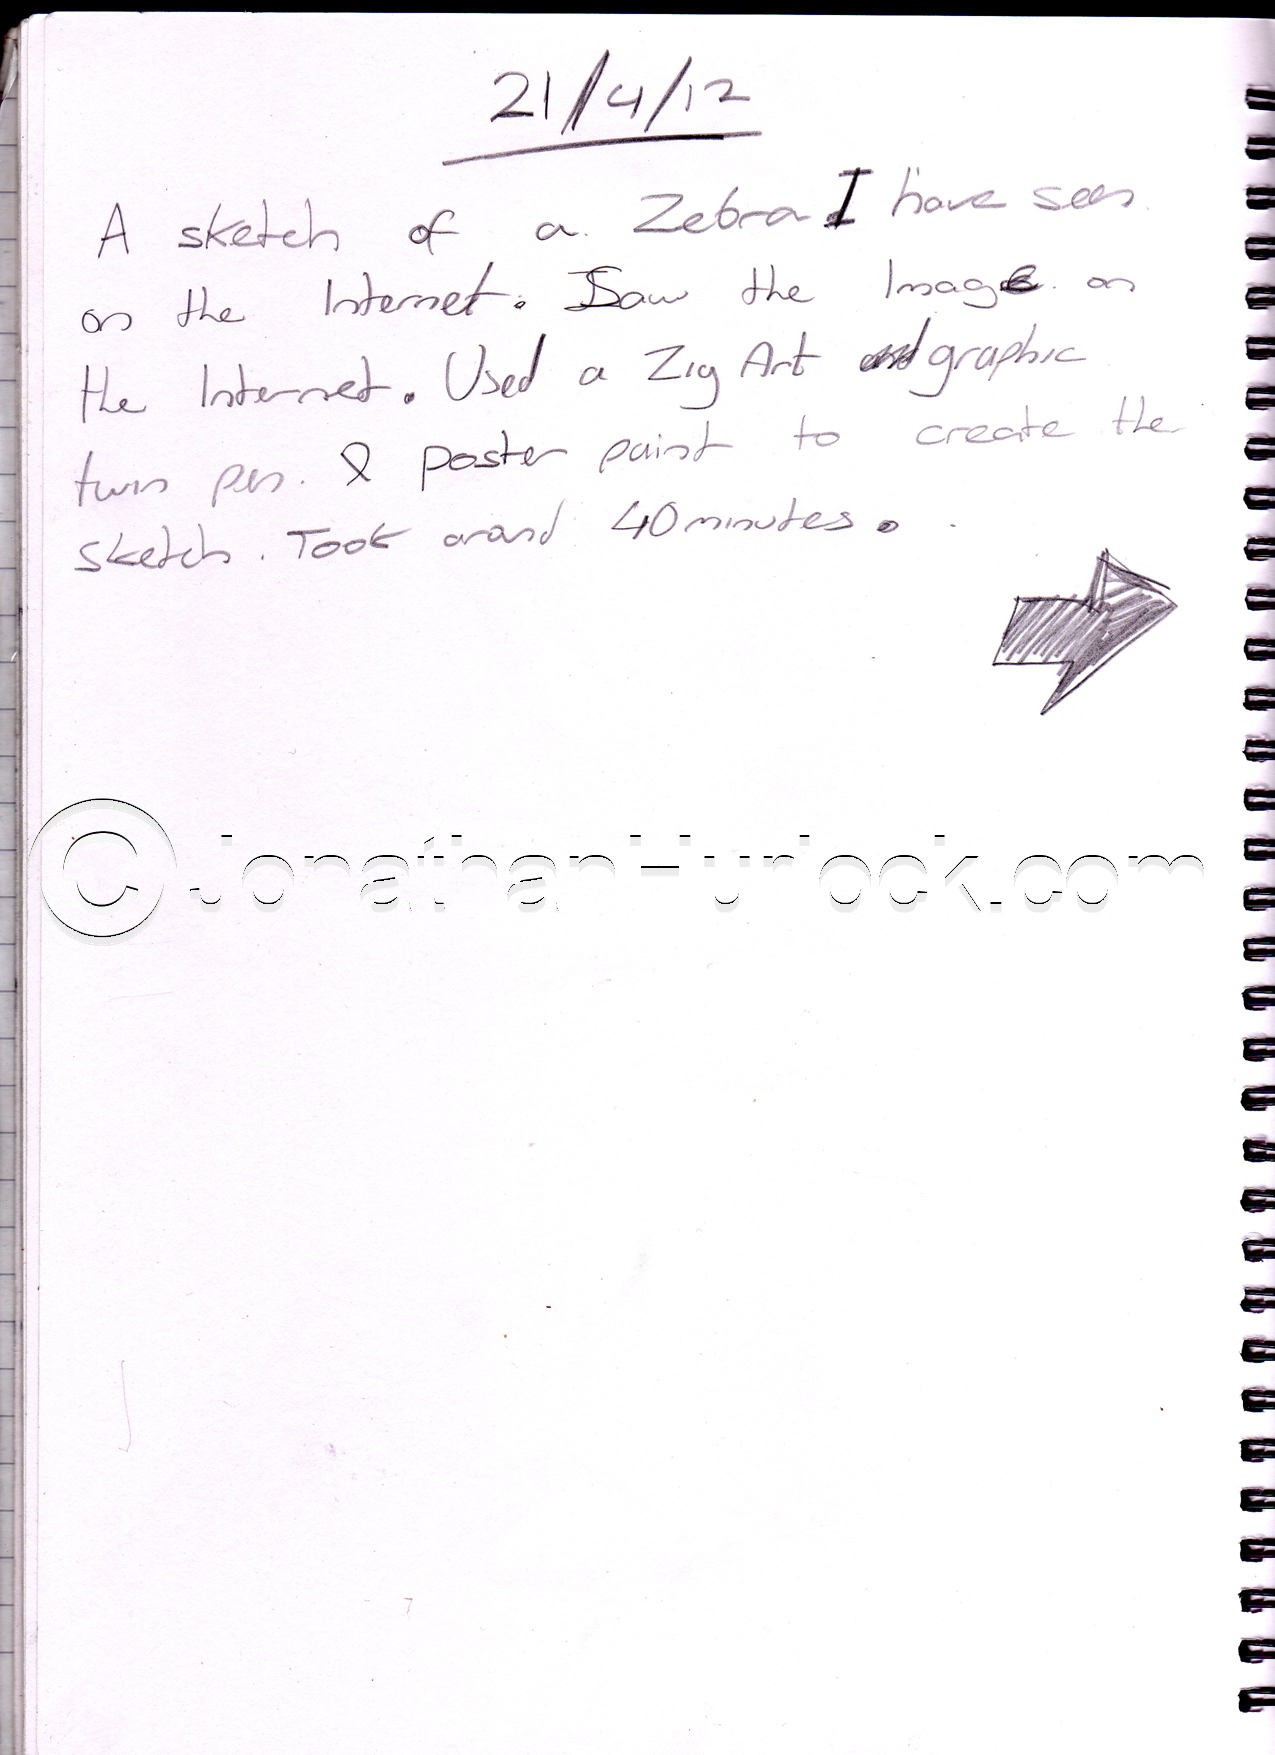 21/4/12
A sketch of a Zebra. I have seen
on the Internet. Saw the Image on
the Internet. Used a Zig Art and graphic
twin pen. & poster paint to create the
sketch. Took around 40minutes.
© JonathanHurlock.com